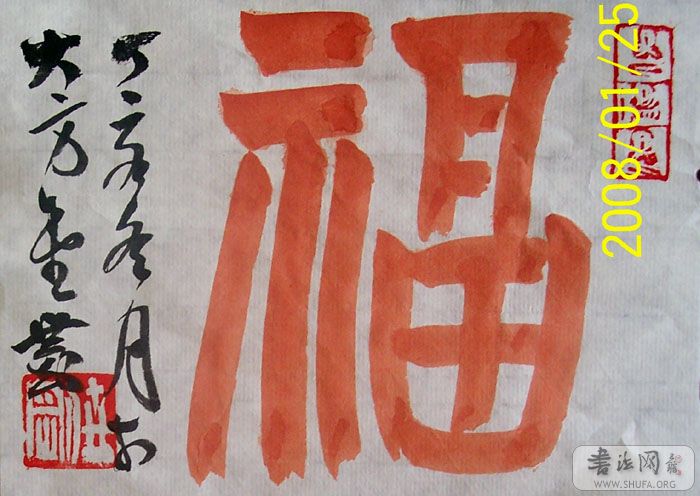 福
丁亥冬月于
大方
2008/01/25
书法网
WWW.SHUFA.ORG